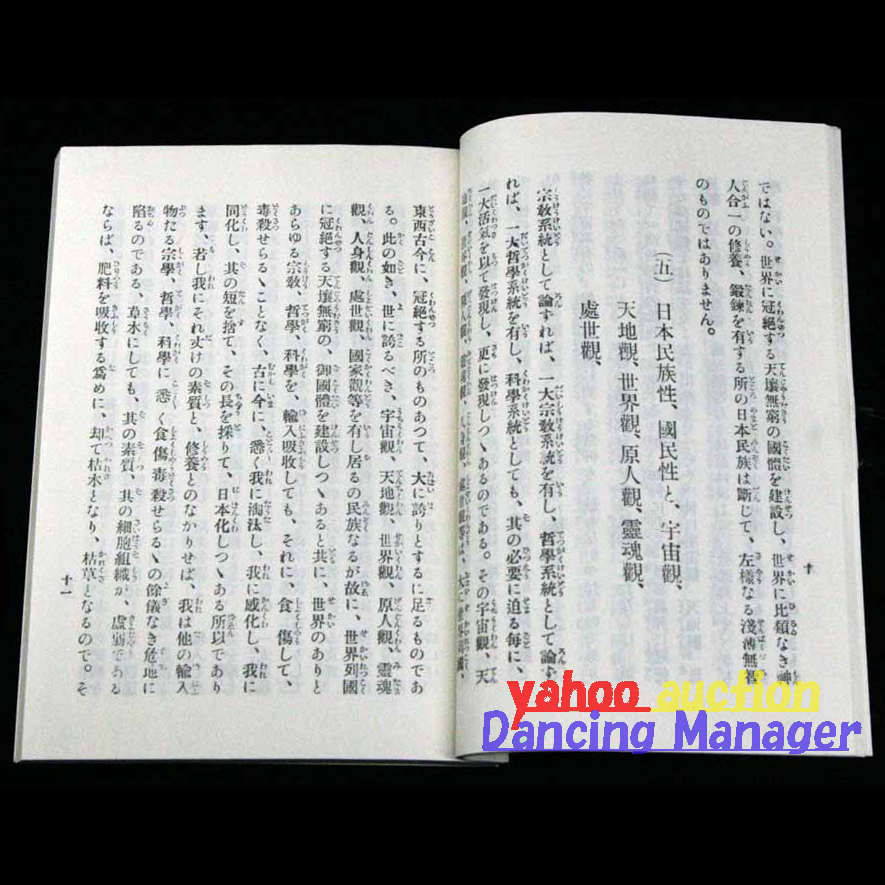 ではない。世界に冠絶する天壤無窮の國體を建設し、世界に比類なき神
人合一の修養、鍛鍊を有する所の日本民族は斷じて、左樣なる淺薄無智
のものではありません。
(五) 日本民族性、國民性と、宇宙觀、
天地觀、世界觀、原人觀、靈魂觀、
處世觀、
宗敎系統として論ずれば、一大宗敎系統を有し、哲學系統として論ず
れば、一大哲學系統を有し、科學系統としても、其の必要に迫る每に、
一大活氣を以て發現し、更に發現しつゝあるのである。その宇宙觀、天
十
東西古今に、冠絶する所のものあつて、大に誇りとするに足るものであ
る。此の如き、世に誇るべき、宇宙觀、天地觀、世界觀、原人觀、靈魂
觀、人身觀、處世觀、國家觀等を有し居るの民族なるが故に、世界列國
に冠絶する天壤無窮の、御國體を建設しつゝあると共に、世界のありと
あらゆる宗敎、哲學、科學を、輸入吸收しても、それに、食傷して、
毒殺せらるゝことなく、古に今に、悉く我に淘汰し、我に感化し、我に
同化し、其の短を捨て、その長を採りて、日本化しつゝある所以であり
ます、若し我にそれ丈けの素質と、修養とのなかりせば、我は他の輸入
物たる宗學、哲學、科學に悉く食傷毒殺せらるゝの餘儀なき危地に
陷るのである、草木にしても、其の素質、其の細胞組織が、虛弱である
ならば、肥料を吸收する爲めに、却て枯木となり、枯草となるので。そ
十一
yahoo auction
Dancing Manager